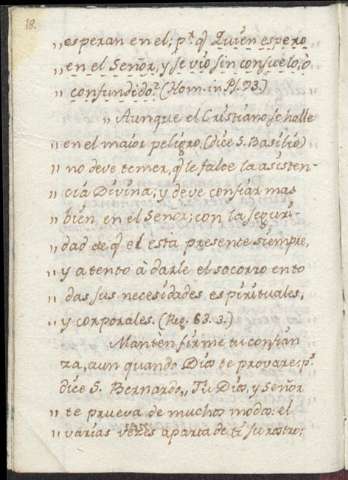 18.
„ esperan en el; p.r q.e Quien espero
„ en el Señor, y se vio sin consuelo, o
„ confundido? (Hom. in Ps. 93.)
„ Aunque el Cristiano se holle
„ en el maior peligro, (dice S. Basilio)
„ no deve temer, q.e le falte la asisten-
„ cia Divina; y deve confiar mas
„ bien en el Señor; con la seguri-
„ dad de q.e el està presente siempre,
„ y atento à darle el socorro en to
„ das sus necesidades espirituales,
„ y corporales. (Reg. 63. 3.)
Mantèn firme tu confian
za, aun quando Dios te provare; p.s
dice S. Bernardo, „ Tu Dios, y Señor
„ te prueva de muchos modos: el
„ varias vezes aparta de ti su rostro;